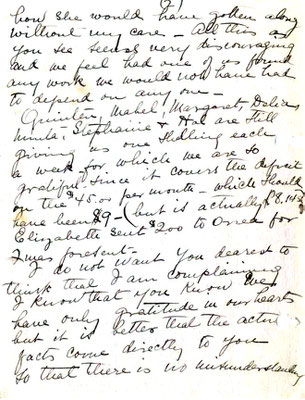 how she would have gotten along
without my care - All this as
you see seems very discouraging
and we feel had one of us found
any work we would not have had
to depend on any one -
Quinten, Mabel, Margaret,
Stephanie & Hal are still
giving us one shilling each
a week for which we are so
grateful since it covers the deficit
on the $45.00 per month - which should
have been £9 - but is actually £8.
Elizabeth sent $200 to for
Xmas present -
I do not want you dearest to
think that I am complaining
I know that you know we
have only gratitude in our hearts
but it is better that the actual
facts come directly to you
so that there is no misunderstanding